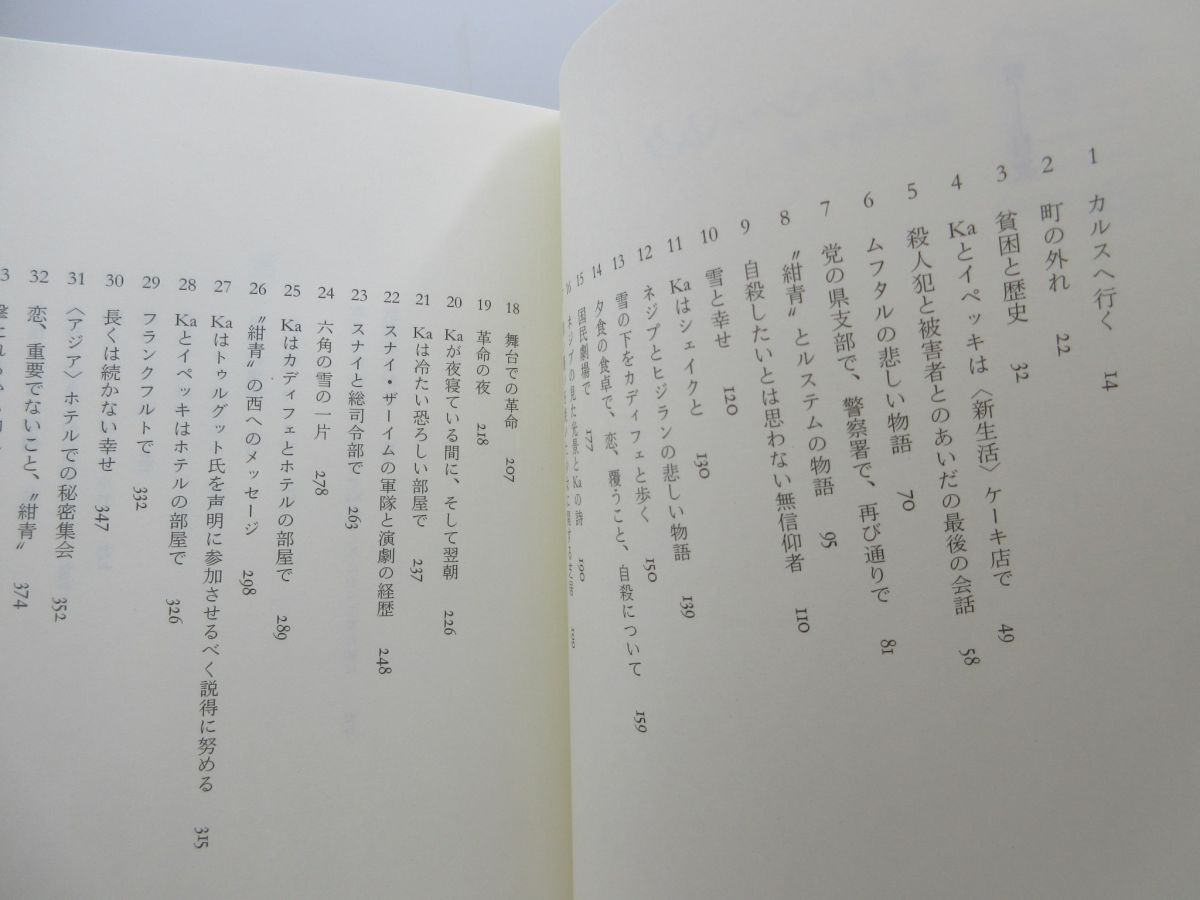 1 カルスへ行く 14
2 町の外れ 22
3 貧困と歴史 32
4 Kaとイペッキは〈新生活〉ケーキ店で 49
5 殺人犯と被害者とのあいだの最後の会話 58
6 ムフタルの悲しい物語 70
7 党の県支部で、警察署で、再び通りで 81
8 〝紺青〟とルステムの物語 95
9 自殺したいとは思わない無信仰者 110
10 雪と幸せ 120
11 Kaはシェイクと 130
12 ネジプとヒジランの悲しい物語 139
13 雪の下をカディフェと歩く 150
14 夕食の食卓で、恋、覆うこと、自殺について 159
15 国民劇場で 177
16 ネジプの見た光景とKaの詩 190
18 舞台での革命 207
19 革命の夜 218
20 Kaが夜寝ている間に、そして翌朝 226
21 Kaは冷たい恐ろしい部屋で 237
22 スナイ・ザーイムの軍隊と演劇の経歴 248
23 スナイと総司令部で 263
24 六角の雪の一片 278
25 Kaはカディフェとホテルの部屋で 289
26 〝紺青〟の西へのメッセージ 298
27 Kaはトゥルグット氏を声明に参加させるべく説得に努める 315
28 Kaとイペッキはホテルの部屋で 326
29 フランクフルトで 332
30 長くは続かない幸せ 347
31 〈アジア〉ホテルでの秘密集会 352
32 恋、重要でないこと、〝紺青〟 374